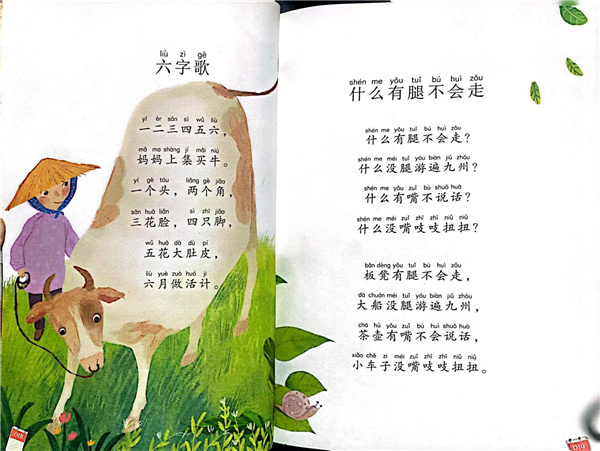 liù zì gē
六字歌
yī èr sān sì wǔ liù
一二三四五六，
mā ma shàng jí mǎi niú
妈妈上集买牛。
yí gè tóu liǎng gè jiǎo
一个头，两个角，
sān huā liǎn sì zhī jiǎo
三花脸，四只脚，
wǔ huā dà dù pí
五花大肚皮，
liù yuè zuò huó jì
六月做活计。
018
shén me yǒu tuǐ bú huì zǒu
什么有腿不会走
shén me yǒu tuǐ bú huì zǒu
什么有腿不会走？
shén me méi tuǐ yóu biàn jiǔ zhōu
什么没腿游遍九州？
shén me yǒu zuǐ bù shuō huà
什么有嘴不说话？
shén me méi zuǐ zhī zhī niǔ niǔ
什么没嘴吱吱扭扭？
bǎn dèng yǒu tuǐ bú huì zǒu
板凳有腿不会走，
dà chuán méi tuǐ yóu biàn jiǔ zhōu
大船没腿游遍九州，
chá hú yǒu zuǐ bù shuō huà
茶壶有嘴不说话，
xiǎo chē zi méi zuǐ zhī zhī niǔ niǔ
小车子没嘴吱吱扭扭。
019